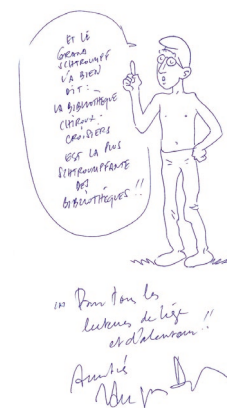 ET LE
GRAND
SCHTROUMPF
L'A BIEN
DIT :
LA BIBLIOTHÈQUE
CHIROUX-
CROISIERS
EST LA PLUS
SCHTROUMPFANTE
DES
BIBLIOTHÈQUES !!
Pour tous les
lecteurs de Liège
et d'alentour !!
Amitiés